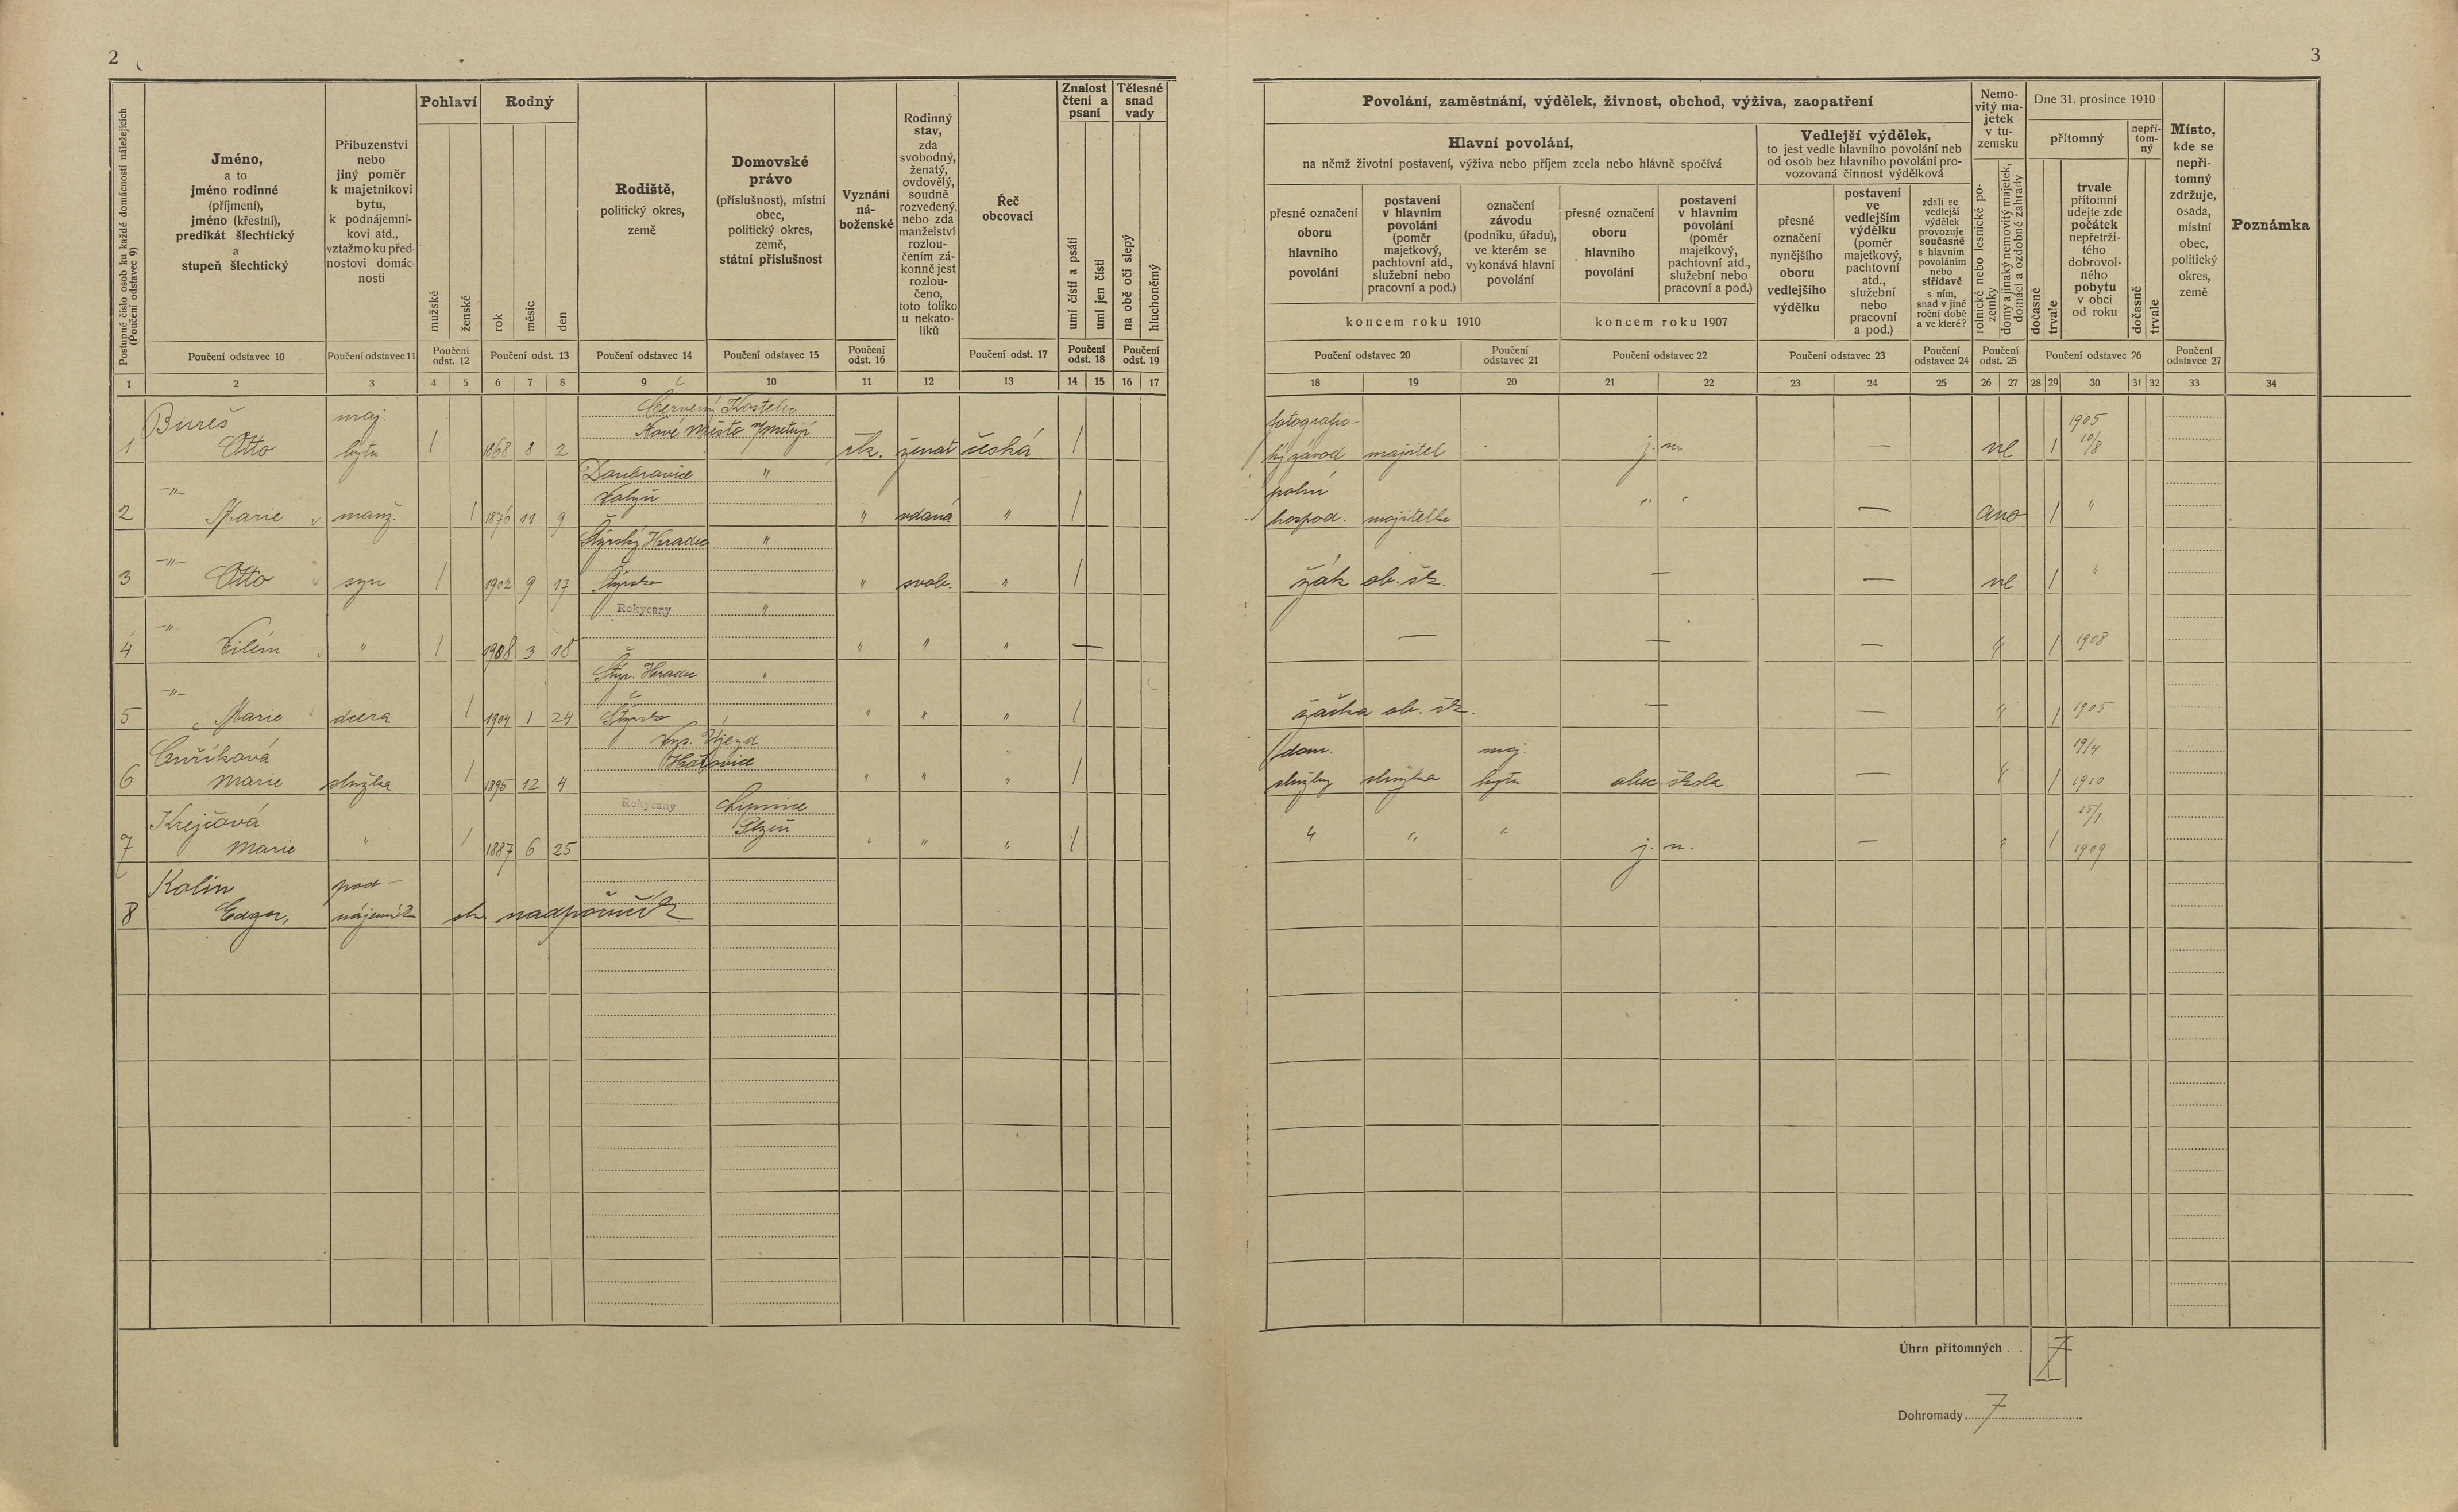 2
3
Postupné číslo osob ku každé domácnosti náležejících
(Poučení odstavec 9)
Jméno,
a to
jméno rodinné
(příjmení),
jméno (křestní),
predikát šlechtický
a
stupeň šlechtický
Poučení odstavec 10
Příbuzenství
nebo
jiný poměr
k majetníkovi
bytu,
k podnájemní-
kovi atd.,
vztažmo ku před-
nostovi domác-
nosti
Poučení odstavec 11
Pohlaví
mužské
ženské
Poučení
odst. 12
Rodný
rok
měsíc
den
Poučení odst. 13
Rodiště,
politický okres,
země
Poučení odstavec 14
Domovské
právo
(příslušnost), místní
obec,
politický okres,
země,
státní příslušnost
Poučení odstavec 15
Vyznání
ná-
boženské
Poučení
odst. 16
Rodinný
stav,
zda
svobodný,
ženatý,
ovdovělý,
soudně
rozvedený,
nebo zda
manželství
rozlou-
čením zá-
konně jest
rozlou-
čeno,
toto toliko
u nekato-
líků
Řeč
obcovací
Poučení odst. 17
Znalost
čtení a
psaní
umí čísti a psáti
umí jen čísti
Poučení
odst. 18
Tělesné
snad
vady
na obě oči slepý
hluchoněmý
Poučení
odst. 19
Povolání, zaměstnání, výdělek, živnost, obchod, výživa, zaopatření
Hlavní povolání,
na němž životní postavení, výživa nebo příjem zcela nebo hlavně spočívá
přesné označení
oboru
hlavního
povolání
postavení
v hlavním
povolání
(poměr
majetkový,
pachtovní atd.,
služební nebo
pracovní a pod.)
označení
závodu
(podniku, úřadu),
ve kterém se
vykonává hlavní
povolání
přesné označení
oboru
hlavního
povolání
postavení
v hlavním
povolání
(poměr
majetkový,
pachtovní atd.,
služební nebo
pracovní a pod.)
koncem roku 1910
koncem roku 1907
Poučení odstavec 20
Poučení
odstavec 21
Poučení odstavec 22
Vedlejší výdělek,
to jest vedle hlavního povolání neb
od osob bez hlavního povolání pro-
vozovaná činnost výdělková
přesné
označení
nynějšího
oboru
vedlejšího
výdělku
postavení
ve
vedlejším
výdělku
(poměr
majetkový,
pachtovní
atd.,
služební
nebo
pracovní
a pod.)
zdali se
vedlejší
výdělek
provozuje
současně
s hlavním
povoláním
nebo
střídavě
s ním,
snad v jiné
roční době
a ve které?
Poučení odstavec 23
Poučení
odstavec 24
Nemo-
vitý ma-
jetek
v tu-
zemsku
rolnické nebo lesnické po-
zemky
domy a jinaký nemovitý majetek,
domácí a ozdobné zahrady
Poučení
odst. 25
Dne 31. prosince 1910
přítomný
nepří-
tom-
ný
dočasně
trvale
trvale
přítomní
udejte zde
počátek
nepřetrži-
tého
dobrovol-
ného
pobytu
v obci
od roku
dočasně
trvale
Poučení odstavec 26
Místo,
kde se
nepří-
tomný
zdržuje,
osada,
místní
obec,
politický
okres,
země
Poučení
odstavec 27
Poznámka
1 2 3 4 5 6 7 8 9 10 11 12 13 14 15 16 17
18 19 20 21 22 23 24 25 26 27 28 29 30 31 32 33 34
Bureš maj. Červený Kostelec fotografic- 1905
Nové Město n/Metují 10/8
1 Otto bytu 1 1868 8 2 řk. ženat česká / ký závod majitel j. n. — ne 1
-"- Doubravice " polní
Volyň
2 Marie manž. 1 1876 11 9 " vdaná " / hospod. majitelka " " — ano 1 "
-"- Štýrský Hradec "
3 Otto syn 1 1902 9 17 Štýrsko " svob. " / žák ob. šk. — — ne 1 "
-"- Rokycany "
4 Vilém " 1 1908 3 18 " " " — — — — " 1 1908
-"- Štýr. Hradec "
5 Marie dcera 1 1904 1 24 Štýrsko " " " / žačka ob. šk. — — " 1 1905
Cuříková Újezd dom. maj. 19/4
Hořovice
6 Marie služka 1 1895 12 4 " " " / služby služka bytu obec. škola — " 1 1910
Krejčová Rokycany 15/1
Plzeň
7 Marie " 1 1887 6 25 " " " / " " " j. n. — " 1 1909
Kolin pod-
8 Edgar, nájemník nadporučík
Úhrn přítomných . . 7
Dohromady 7